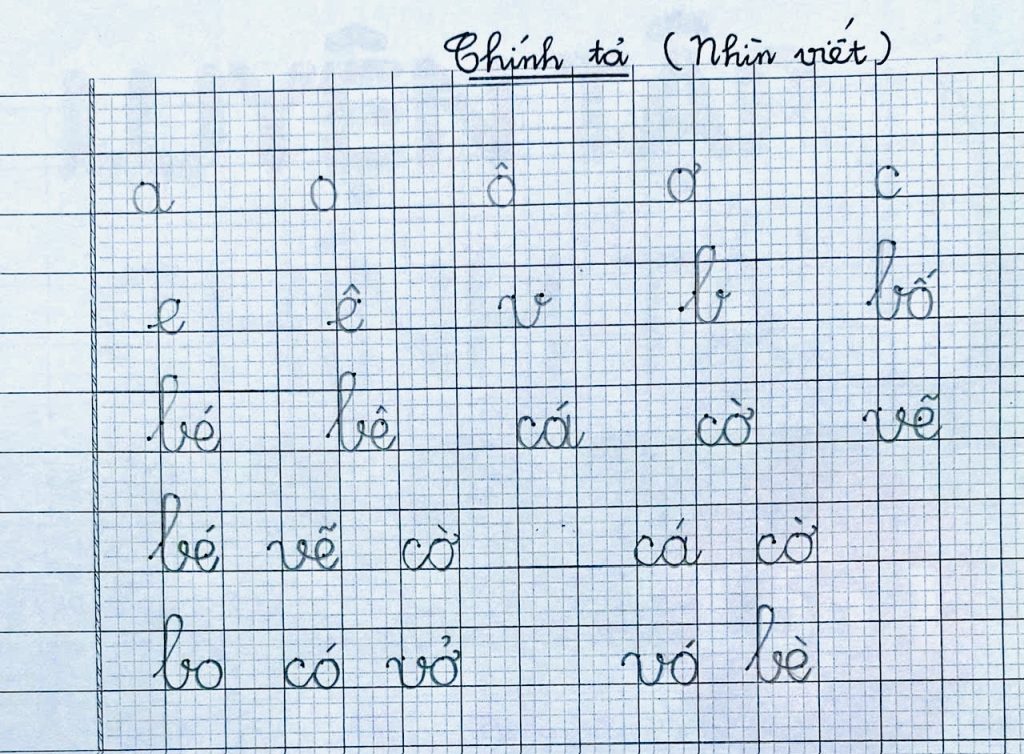 Chính tả (Nhìn viết)
a o ô ơ c
e ê v b bố
bé bê cá cờ vẽ
bé vẽ cờ cá cờ
bo có vở vó bè